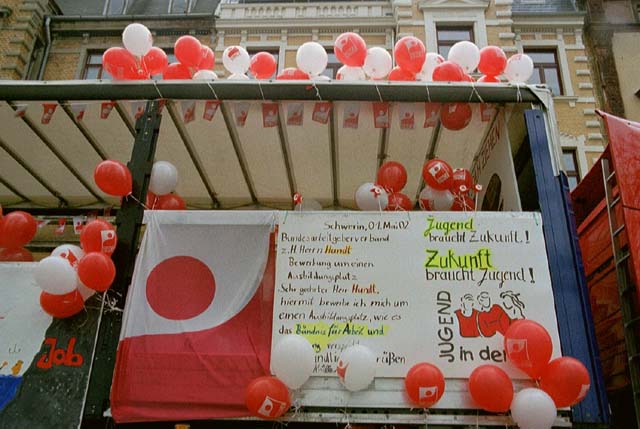 Schwerin, 01. Mai 02
Bundesarbeitgeberverband
z.H. Herrn Hundt
Bewerbung um einen
Ausbildungsplatz
Sehr geehrter Herr Hundt,
hiermit bewerbe ich mich um
einen Ausbildungsplatz, wie es
das Bündnis für Arbeit und
Jugend
braucht Zukunft!
Zukunft
braucht Jugend!
JUGEND
in der
Job